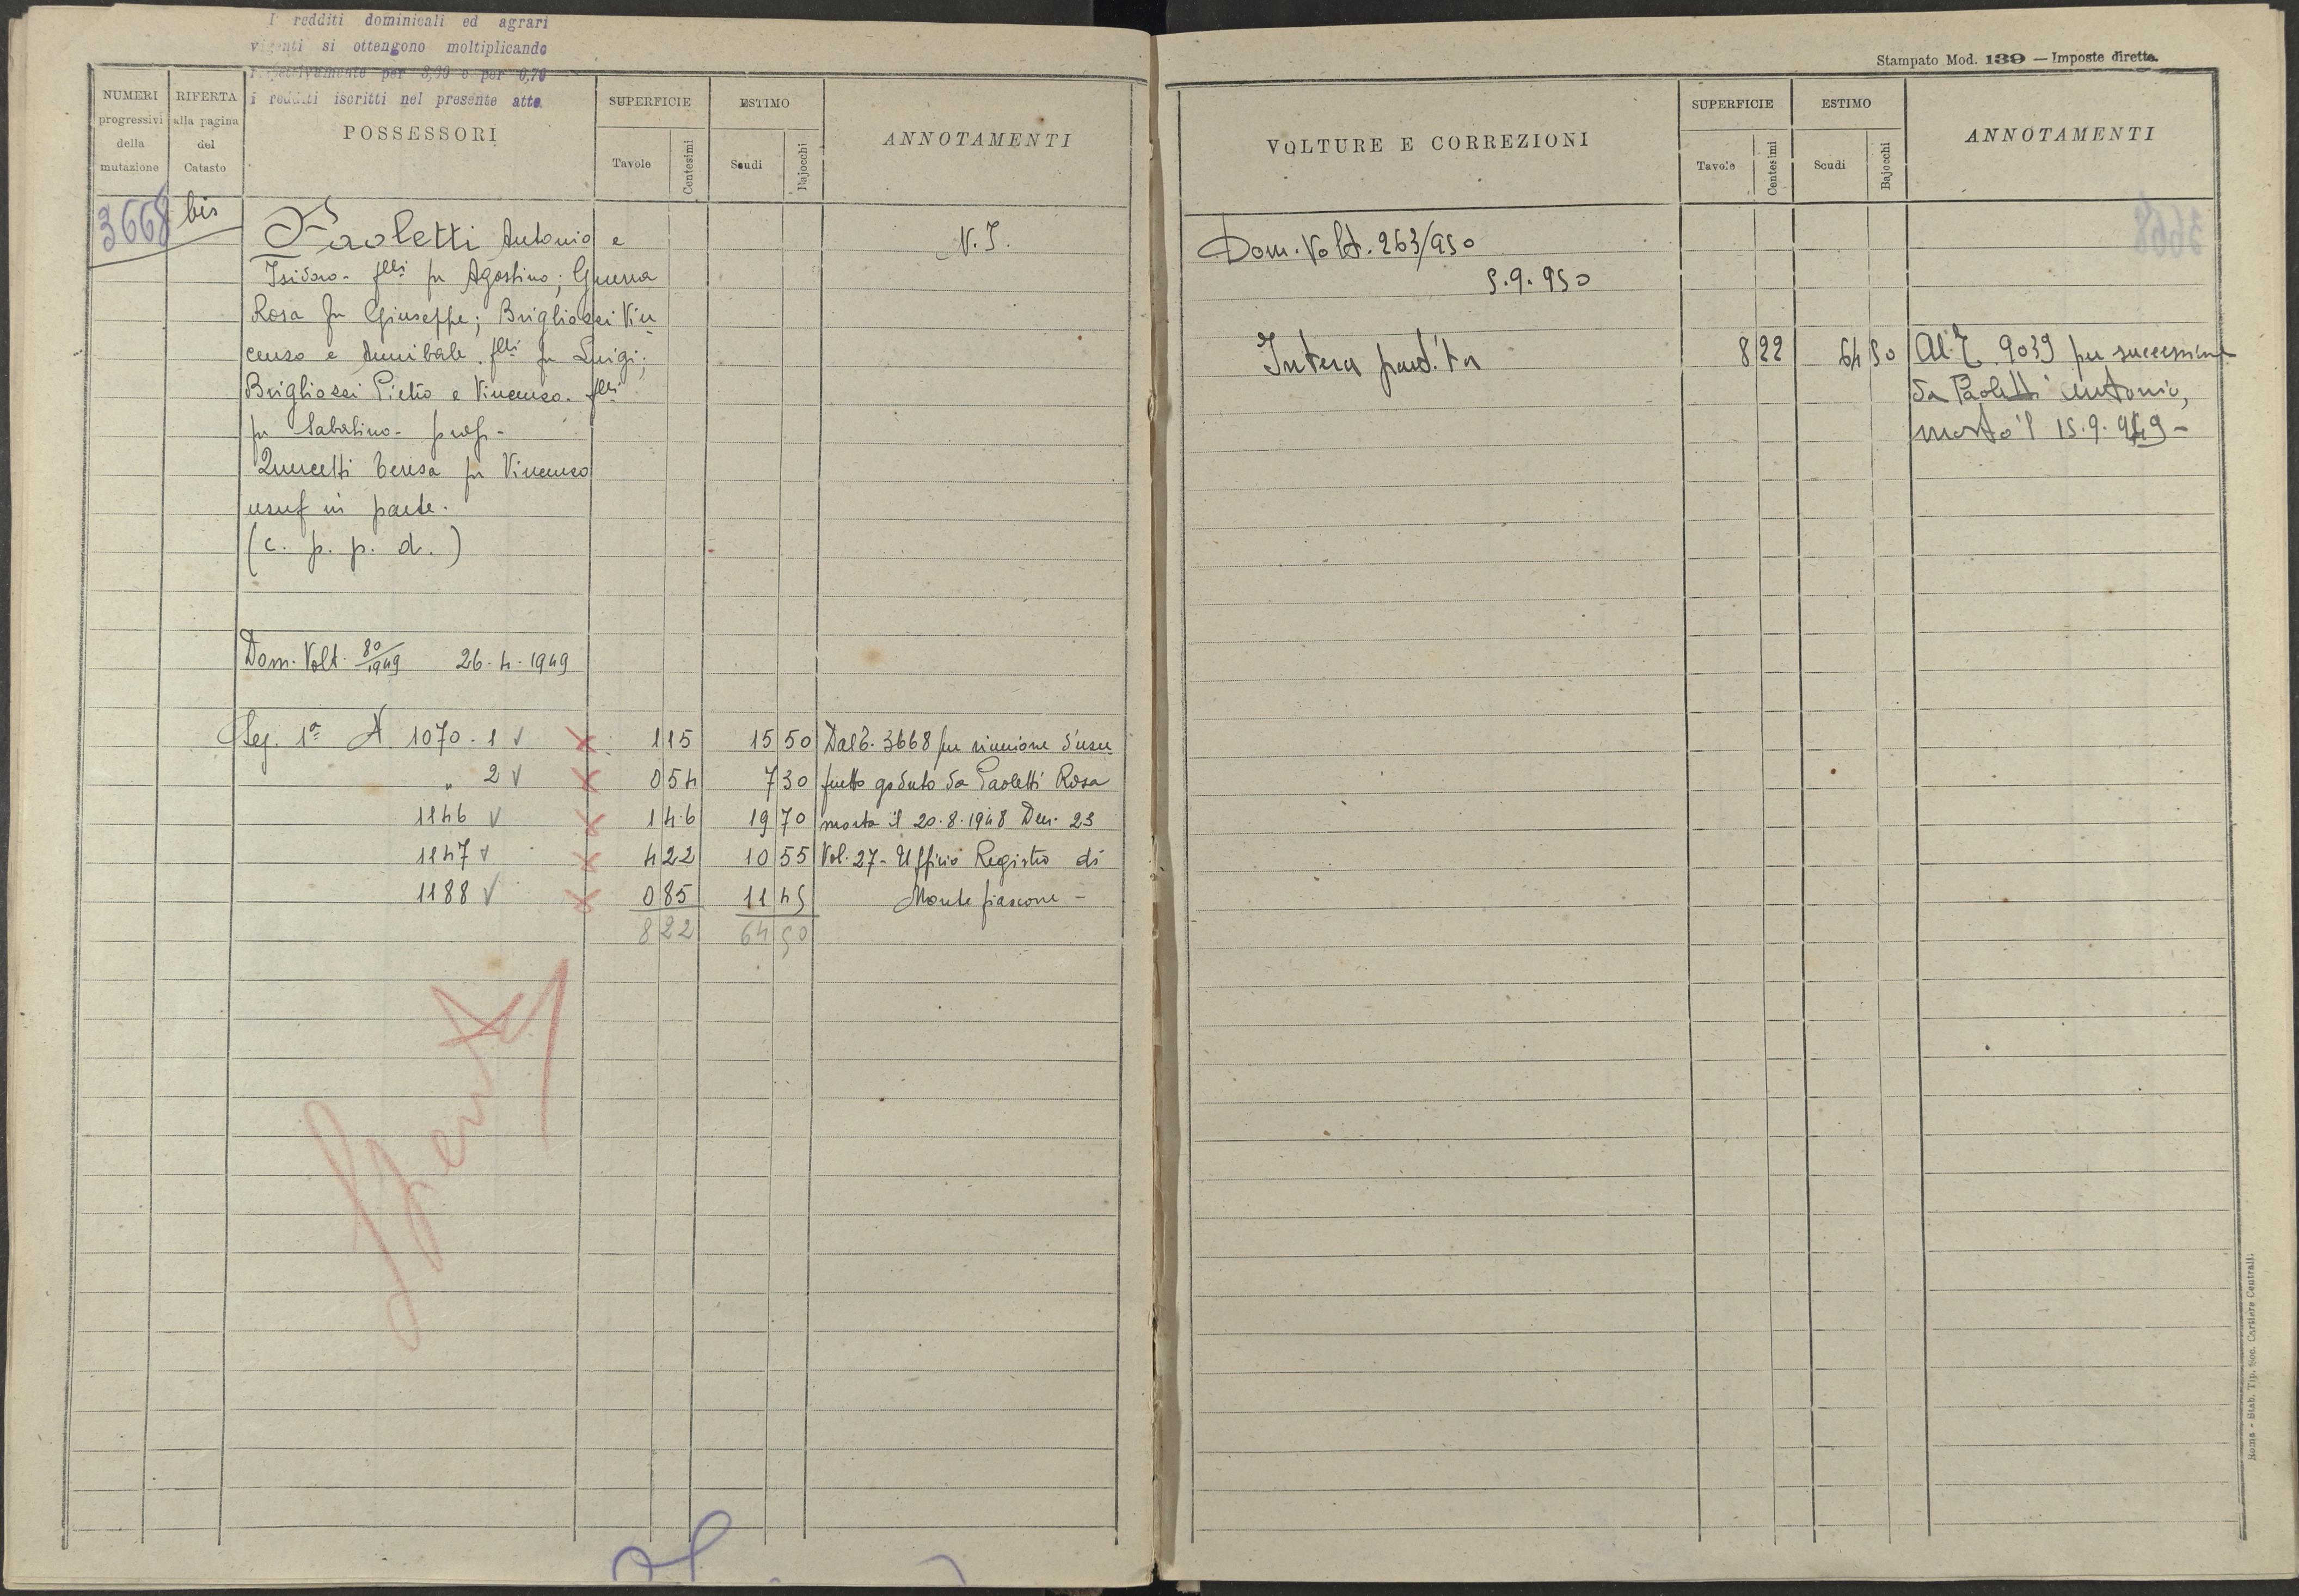 I redditi dominicali ed agrari
vigenti si ottengono moltiplicando
rispettivamente per 3,90 e per 0,70
i redditi iscritti nel presente atto.
NUMERI
progressivi
della
mutazione
RIFERTA
alla pagina
del
Catasto
POSSESSORI
SUPERFICIE
Tavole
Centesimi
ESTIMO
Scudi
Bajocchi
ANNOTAMENTI
3668 bis
Paoletti Antonio e
Isidoro - flli fu Agostino; Guerra
Rosa fu Giuseppe; Brigliozzi Vin
cenzo e Annibale flli fu Luigi;
Brigliozzi Pietro e Vincenzo - flli
fu Sabatino - prop -
Quercetti Teresa fu Vincenzo
usuf in parte.
(c. p. p. d.)
N. I.
Dom. Volt. 80/1949 26-4-1949
Sez. 1ª A 1070.1 √ x 1 15 15 50 Dal T. 3668 per riunione d'usu
" 2 √ x 0 54 7 30 frutto goduto da Paoletti Rosa
1146 √ x 1 46 19 70 morta il 20.8.1948 Den. 23
1147 √ x 4 22 10 55 Vol. 27 - Ufficio Registro di
1188 √ x 0 85 11 45 Montefiascone -
8 22 64 50
Spenta
Stampato Mod. 139 — Imposte dirette.
VOLTURE E CORREZIONI
SUPERFICIE
Tavole
Centesimi
ESTIMO
Scudi
Bajocchi
ANNOTAMENTI
Dom. Volt. 263/950
5.9.950
Intera partita 8 22 64 50 Al T. 9039 per successione
da Paoletti Antonio,
morto il 15.9.949 -
Roma - Stab. Tip. Soc. Cartiere Centrali.